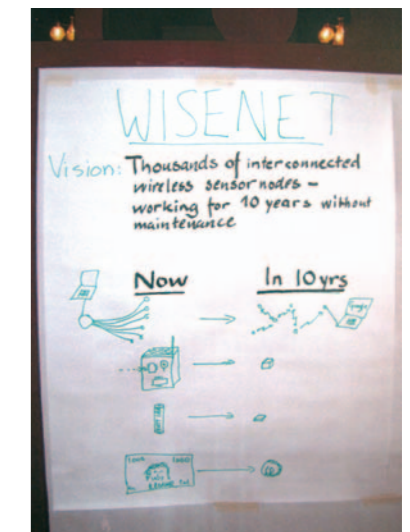 WISENET
Vision: Thousands of interconnected
wireless sensor nodes –
working for 10 years without
maintenance
Now
In 10 yrs